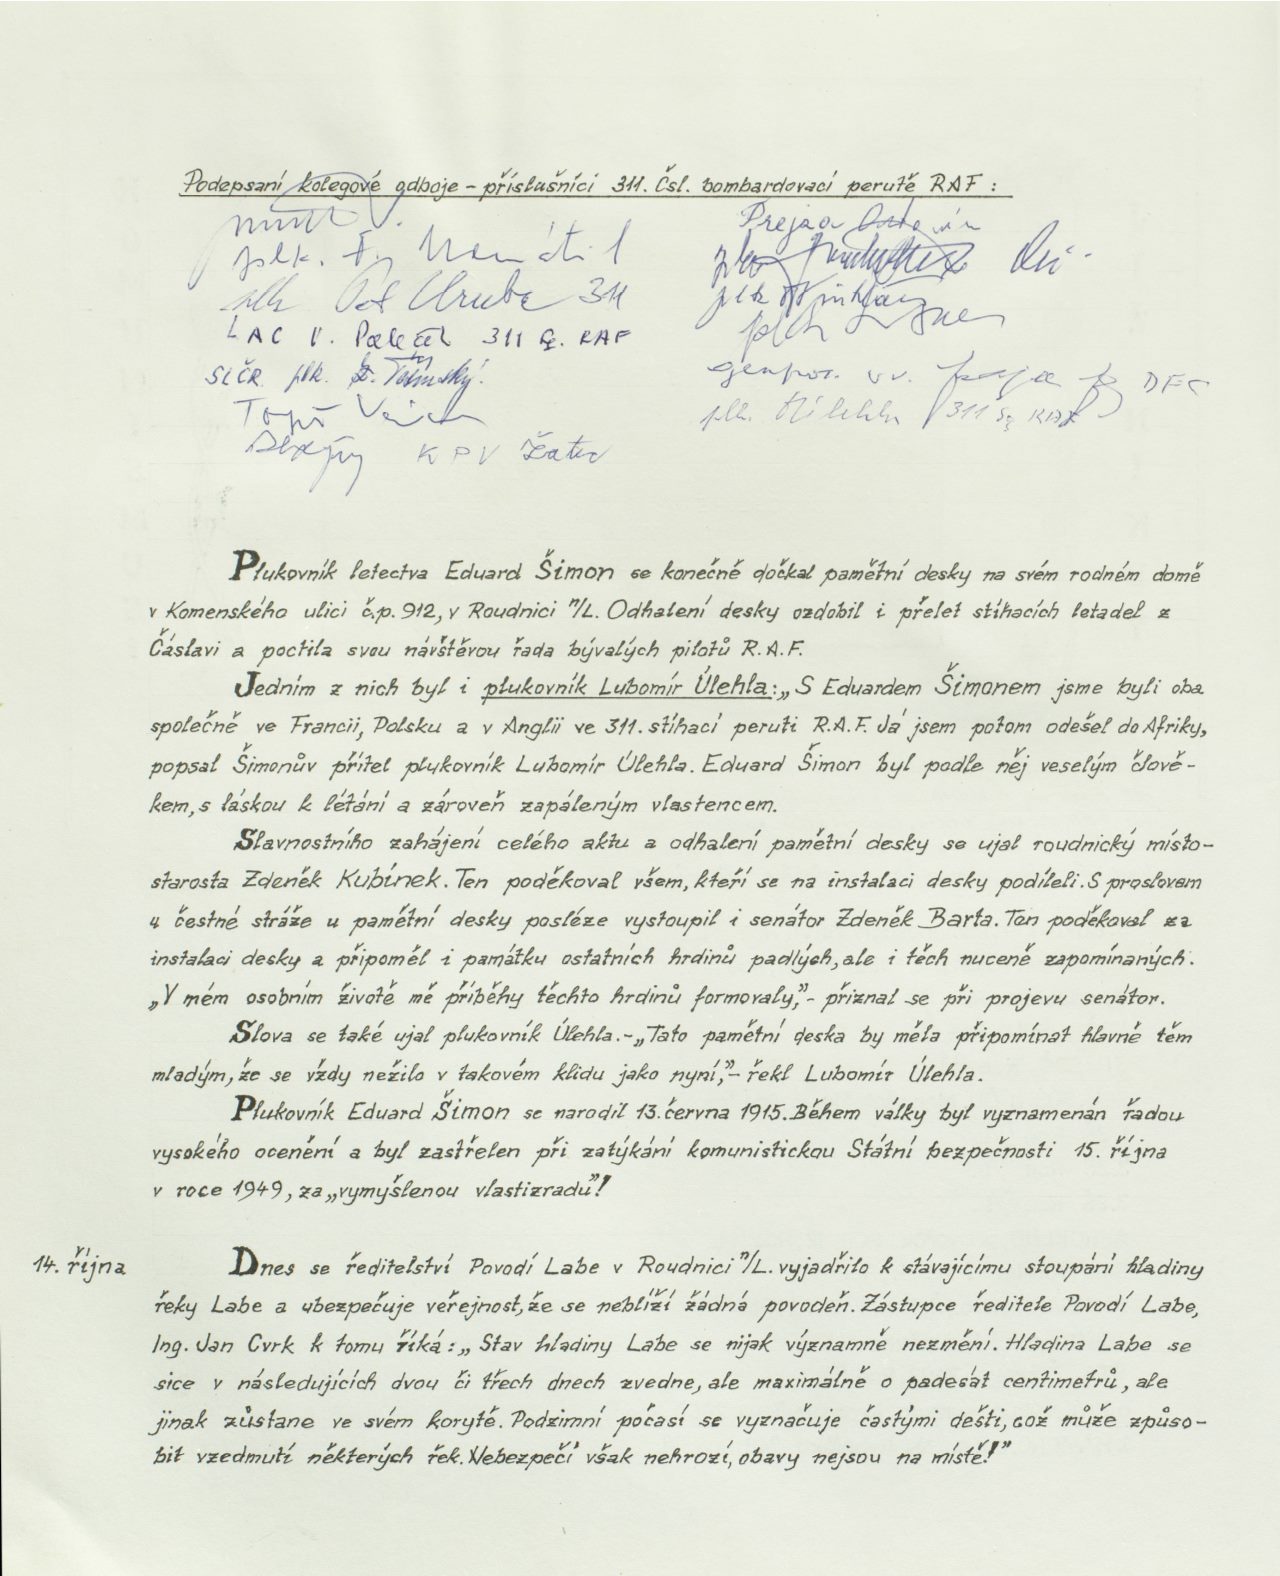 Podepsaní kolegové odboje – příslušníci 311. Čsl. bombardovací perutě RAF :
plk.
plk. 311
LAC V. 311 Sq. RAF
SLČR plk.
KPV Žatec
plk.
plk.
genpor. v.v. DFC
plk. 311 Sq RAF
Plukovník letectva Eduard Šimon se konečně dočkal pamětní desky na svém rodném domě
v Komenského ulici č.p. 912, v Roudnici n/L. Odhalení desky ozdobil i přelet stíhacích letadel z
Čáslavi a poctila svou návštěvou řada bývalých pilotů R.A.F.
Jedním z nich byl i plukovník Lubomír Úlehla: „S Eduardem Šimonem jsme byli oba
společně ve Francii, Polsku a v Anglii ve 311. stíhací peruti R.A.F. Já jsem potom odešel do Afriky,
popsal Šimonův přítel plukovník Lubomír Úlehla. Eduard Šimon byl podle něj veselým člově-
kem, s láskou k létání a zároveň zapáleným vlastencem.
Slavnostního zahájení celého aktu a odhalení pamětní desky se ujal roudnický místo-
starosta Zdeněk Kubínek. Ten poděkoval všem, kteří se na instalaci desky podíleli. S proslovem
u čestné stráže u pamětní desky posléze vystoupil i senátor Zdeněk Barta. Ten poděkoval za
instalaci desky a připoměl i památku ostatních hrdinů padlých, ale i těch nuceně zapomínaných.
„V mém osobním životě mě příběhy těchto hrdinů formovaly," – přiznal se při projevu senátor.
Slova se také ujal plukovník Úlehla. – „Tato pamětní deska by měla připomínat hlavně těm
mladým, že se vždy nežilo v takovém klidu jako nyní," – řekl Lubomír Úlehla.
Plukovník Eduard Šimon se narodil 13. června 1915. Během války byl vyznamenán řadou
vysokého ocenění a byl zastřelen při zatýkání komunistickou Státní bezpečnosti 15. října
v roce 1949, za „vymyšlenou vlastizradu"!
14. října Dnes se ředitelství Povodí Labe v Roudnici n/L. vyjadřilo k stávajícímu stoupání hladiny
řeky Labe a ubezpečuje veřejnost, že se neblíží žádná povodeň. Zástupce ředitele Povodí Labe,
Ing. Jan Cvrk k tomu říká: „Stav hladiny Labe se nijak významně nezmění. Hladina Labe se
sice v následujících dvou či třech dnech zvedne, ale maximálně o padesát centimetrů, ale
jinak zůstane ve svém korytě. Podzimní počasí se vyznačuje častými dešti, což může způso-
bit vzedmutí některých řek. Nebezpečí však nehrozí, obavy nejsou na místě!"